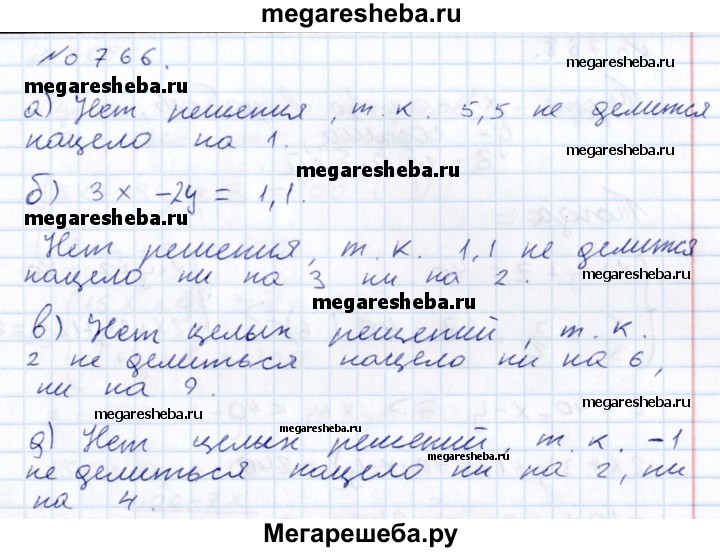 megaresheba.ru
№ 766.
megaresheba.ru
megaresheba.ru
а) Нет решения, т. к. 5,5 не делится
нацело на 1.
megaresheba.ru
megaresheba.ru
б) 3x - 2y = 1,1.
megaresheba.ru
Нет решения, т. к. 1,1 не делится
нацело ни на 3 ни на 2.
megaresheba.ru
megaresheba.ru
в) Нет целых решений, т. к.
2 не делиться нацело ни на 6,
ни на 9.
megaresheba.ru
megaresheba.ru
megaresheba.ru
г) Нет целых решений, т. к. -1
не делиться нацело ни на 2, ни
на 4.
megaresheba.ru
megaresheba.ru
Мегарешеба.ру